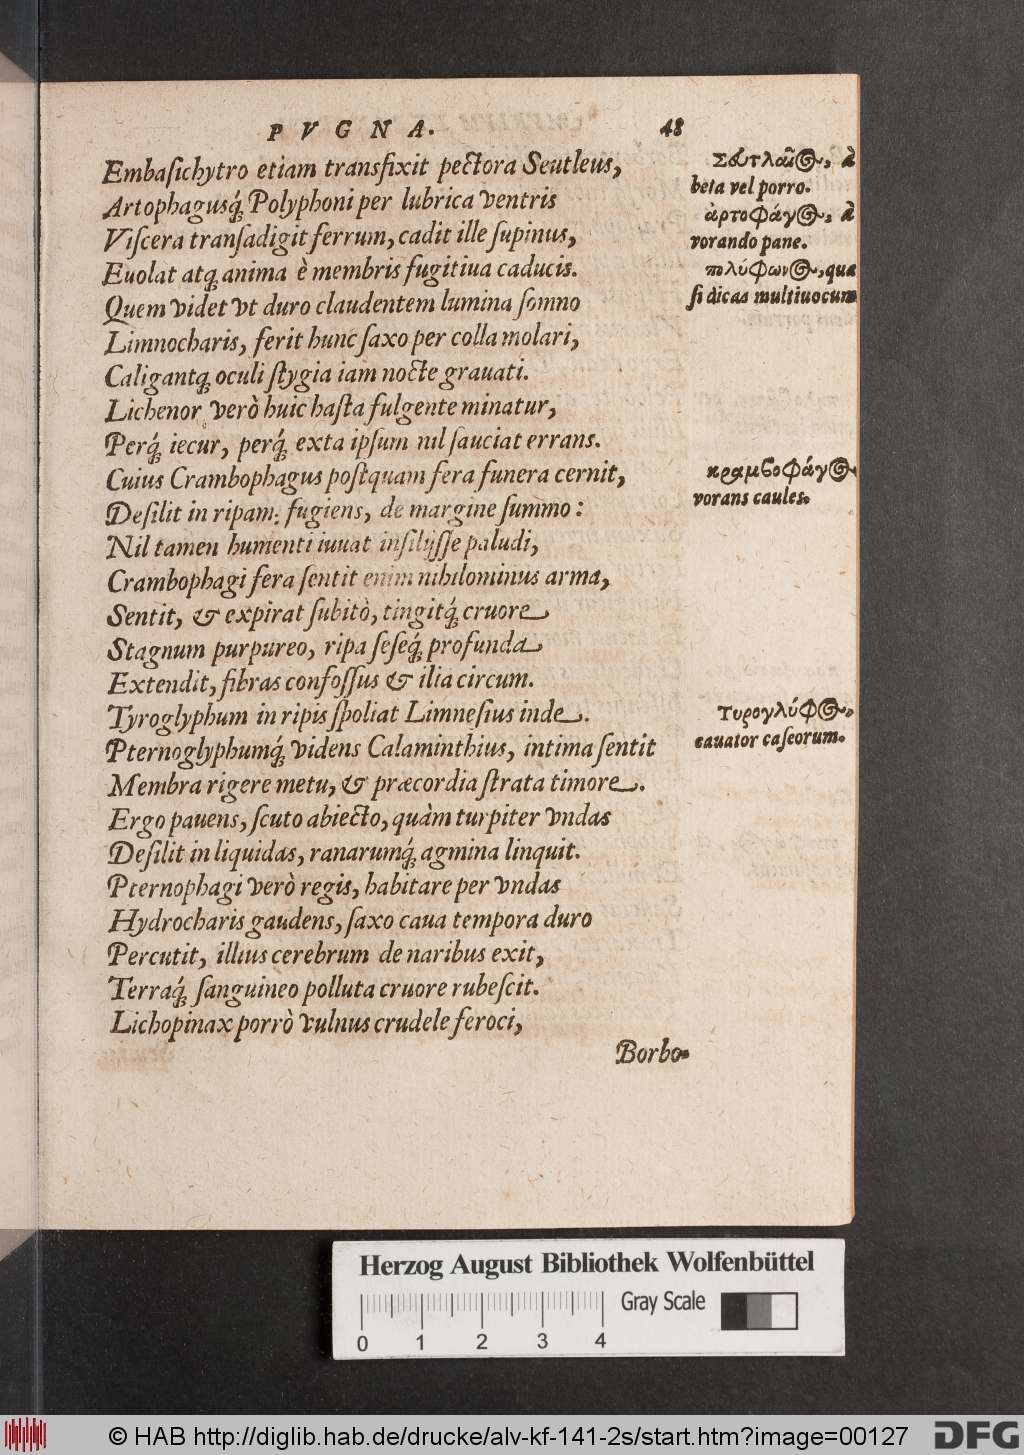 PVGNA. 48
Embaſichytro etiam transfixit pectora Seutleus,
Artophagusq́; Polyphoni per lubrica ventris
Viſcera tranſadigit ferrum, cadit ille ſupinus,
Euolat atq; anima è membris fugitiua caducis.
Quem videt vt duro claudentem lumina ſomno
Limnocharis, ferit hunc ſaxo per colla molari,
Caligantq; oculi ſtygia iam nocte grauati.
Lichenor verò huic haſta fulgente minatur,
Perq́; iecur, perq́; exta ipſum nil ſauciat errans.
Cuius Crambophagus poſtquam fera funera cernit,
Deſilit in ripam: fugiens, de margine ſummo:
Nil tamen humenti iuuat inſilijſſe paludi,
Crambophagi fera ſentit enim nihilominus arma,
Sentit, & expirat ſubitò, tingitq́; cruore
Stagnum purpureo, ripa ſeſeq́; profunda
Extendit, fibras confoſſus & ilia circum.
Tyroglyphum in ripis ſpoliat Limneſius inde.
Pternoglyphumq́; videns Calaminthius, intima ſentit
Membra rigere metu, & præcordia ſtrata timore.
Ergo pauens, ſcuto abiecto, quàm turpiter vndas
Deſilit in liquidas, ranarumq́; agmina linquit.
Pternophagi verò regis, habitare per vndas
Hydrocharis gaudens, ſaxo caua tempora duro
Percutit, illius cerebrum de naribus exit,
Terraq́; ſanguineo polluta cruore rubeſcit.
Lichopinax porrò vulnus crudele feroci,
Borbo-
Σευτλαῖος, à
beta vel porro.
ἀρτοφάγος, à
vorando pane.
πολύφωνος, qua
ſi dicas multiuocum
κραμβοφάγος
vorans caules.
Τυρογλύφος,
cauator caſeorum.
Herzog August Bibliothek Wolfenbüttel
Gray Scale
0 1 2 3 4
© HAB http://diglib.hab.de/drucke/alv-kf-141-2s/start.htm?image=00127
DFG